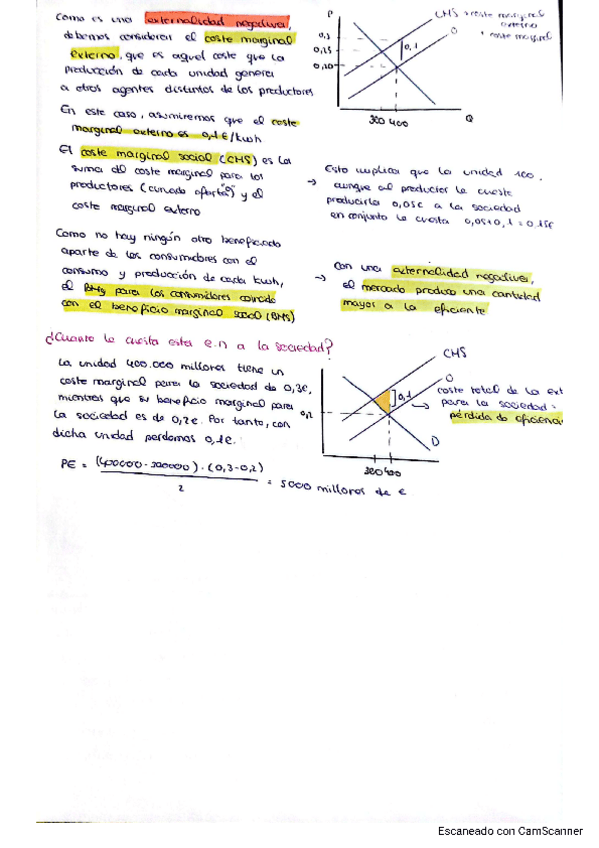 Como es una externalidad negativa,
debemos considerar el coste marginal
externo, que es aquel coste que la
producción de cada unidad genera
a otros agentes distintos de los productores
En este caso, asumiremos que el coste
marginal externo es 0,1 €/kwh
El coste marginal social (CMS) es la
suma del coste marginal para los
productores (curva de oferta) y el
coste marginal externo
P
CMS = coste marginal
externo
+ coste marginal
O
0,3
0,25
0,20
0,1
300 400
Q
→ Esto implica que la unidad 100,
aunque al productor le cueste
producirla 0,05€ a la sociedad
en conjunto le cuesta 0,05+0,1 = 0,15€
Como no hay ningún otro beneficiado
aparte de los consumidores con el
consumo y producción de cada kwh,
el BMg para los consumidores coincide
con el beneficio marginal social (BMS)
→ Con una externalidad negativa,
el mercado produce una cantidad
mayor a la eficiente
¿Cuanto le cuesta esta e.n a la sociedad?
La unidad 400.000 millones tiene un
coste marginal para la sociedad de 0,3€,
mientras que su beneficio marginal para
la sociedad es de 0,2€. Por tanto, con
dicha unidad perdemos 0,1€.
CMS
O
0,1
0,2
D
300 400
→ coste total de la ext
para la sociedad =
pérdida de eficienci
PE = (400000 - 300000) · (0,3-0,2)
2
= 5000 millones de €
Escaneado con CamScanner